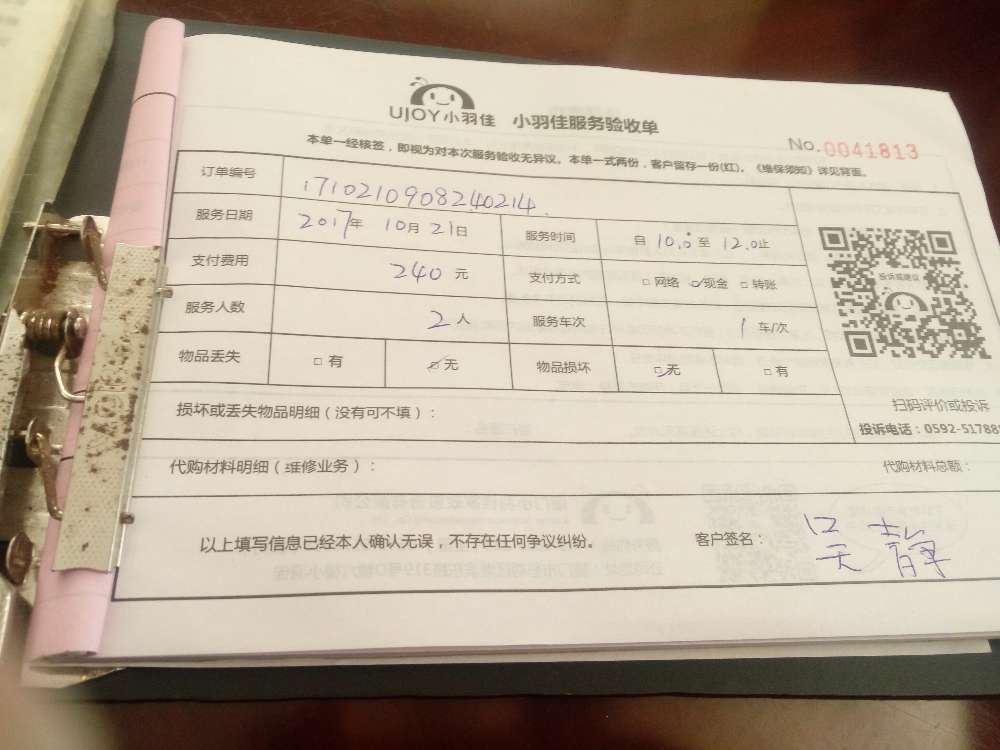 UJOY小羽佳 小羽佳服务验收单
No.0041813
本单一经核签，即视为对本次服务验收无异议。本单一式两份，客户留存一份(红)。《维保须知》详见背面。
订单编号 1710210908240214
服务日期 2017年 10月 21日 服务时间 自 10.0 至 12.0止
支付费用 240 元 支付方式 □ 网络 ☑现金 □ 转账
服务人数 2 人 服务车次 1 车/次
物品丢失 □ 有 ☑无 物品损坏 ☑无 □ 有
投诉或建议
扫码评价或投诉
损坏或丢失物品明细（没有可不填）：
投诉电话：0592-51788
代购材料明细（维修业务）： 代购材料总额：
以上填写信息已经本人确认无误，不存在任何争议纠纷。 客户签名： 吴静